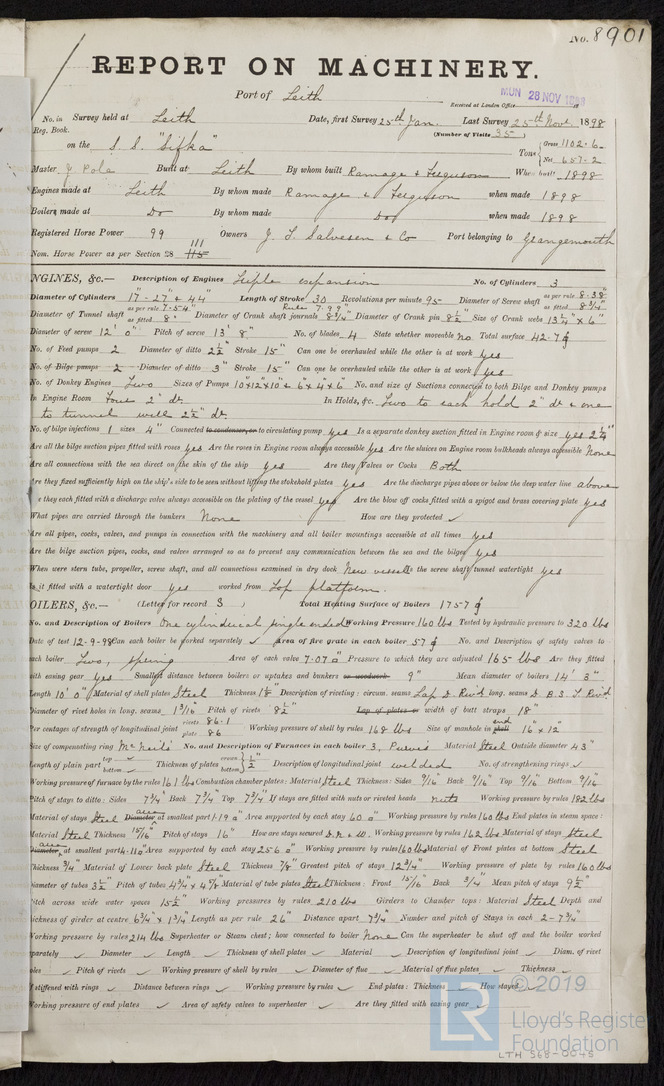 No. 8901
REPORT ON MACHINERY.
Port of Leith
Received at London Office MON 28 NOV 1898
No. in Survey held at Leith Date, first Survey 25th Jan. Last Survey 25th Novr 1898
Reg. Book. (Number of Visits 35)
on the S. S. "Sifka" Tons Gross 1102.6
Net 657.2
Master J Pola Built at Leith By whom built Ramage & Ferguson When built 1898
Engines made at Leith By whom made Ramage & Ferguson when made 1898
Boilers made at Do By whom made Do when made 1898
Registered Horse Power 99 Owners J. T. Salvesen & Co Port belonging to Grangemouth
Nom. Horse Power as per Section 28 115 111
NGINES, &c.— Description of Engines Triple expansion No. of Cylinders 3
Diameter of Cylinders 17"-27" & 44" Length of Stroke 30 Revolutions per minute 95 Diameter of Screw shaft as per rule 8.38" as fitted 8 3/4"
Diameter of Tunnel shaft as per rule 7.54" as fitted 8" Diameter of Crank shaft journals Rule 7.97" 8 1/4" Diameter of Crank pin 8 1/2" Size of Crank webs 13 1/4" x 6"
Diameter of screw 12' 0" Pitch of screw 13' 8" No. of blades 4 State whether moveable no Total surface 42.7 ▯
No. of Feed pumps 2 Diameter of ditto 2 1/2" Stroke 15" Can one be overhauled while the other is at work yes
No. of Bilge pumps 2 Diameter of ditto 3" Stroke 15" Can one be overhauled while the other is at work yes
No. of Donkey Engines Two Sizes of Pumps 10"x12"x10" & 6"x4"x6" No. and size of Suctions connected to both Bilge and Donkey pumps
In Engine Room Four 2" dr. In Holds, &c. Two to each hold 2" dr & one
to tunnel well 2 1/2" dr.
No. of bilge injections 1 sizes 4" Connected to condenser, or to circulating pump yes Is a separate donkey suction fitted in Engine room & size yes 2 1/4"
Are all the bilge suction pipes fitted with roses yes Are the roses in Engine room always accessible yes Are the sluices on Engine room bulkheads always accessible None
Are all connections with the sea direct on the skin of the ship yes Are they Valves or Cocks Both
Are they fixed sufficiently high on the ship's side to be seen without lifting the stokehold plates yes Are the discharge pipes above or below the deep water line above
e they each fitted with a discharge valve always accessible on the plating of the vessel yes Are the blow off cocks fitted with a spigot and brass covering plate yes
What pipes are carried through the bunkers None How are they protected ✓
Are all pipes, cocks, valves, and pumps in connection with the machinery and all boiler mountings accessible at all times yes
Are the bilge suction pipes, cocks, and valves arranged so as to prevent any communication between the sea and the bilges yes
When were stern tube, propeller, screw shaft, and all connections examined in dry dock New vessel Is the screw shaft tunnel watertight yes
Is it fitted with a watertight door yes worked from Top platform.
OILERS, &c.— (Letter for record 3) Total Heating Surface of Boilers 1757 ▯
No. and Description of Boilers One cylindrical single ended Working Pressure 160 lbs Tested by hydraulic pressure to 320 lbs
Date of test 12-9-98 Can each boiler be worked separately ✓ Area of fire grate in each boiler 57 ▯ No. and Description of safety valves to
each boiler Two, spring Area of each valve 7.07 ▯" Pressure to which they are adjusted 165 lbs Are they fitted
with easing gear yes Smallest distance between boilers or uptakes and bunkers or woodwork 9" Mean diameter of boilers 14' 3"
Length 10' 0" Material of shell plates Steel Thickness 1 1/8" Description of riveting: circum. seams Lap D. Riv'd long. seams D B.S. T Riv'd
Diameter of rivet holes in long. seams 1 3/16" Pitch of rivets 8 1/2" Lap of plates or width of butt straps 18"
Per centages of strength of longitudinal joint rivets 86.1 plate 86 Working pressure of shell by rules 168 lbs Size of manhole in shell end 16" x 12"
Size of compensating ring McNeils No. and Description of Furnaces in each boiler 3, Purves Material Steel Outside diameter 43"
Length of plain part top ✓ bottom ✓ Thickness of plates crown bottom 1/2" Description of longitudinal joint welded No. of strengthening rings ✓
Working pressure of furnace by the rules 161 lbs Combustion chamber plates: Material Steel Thickness: Sides 9/16" Back 9/16" Top 9/16" Bottom 9/16"
Pitch of stays to ditto: Sides 7 3/4" Back 7 3/4" Top 7 3/4" If stays are fitted with nuts or riveted heads nuts Working pressure by rules 182 lbs
Material of stays Steel Diameter area at smallest part 1.19 ▯" Area supported by each stay 60 ▯" Working pressure by rules 160 lbs End plates in steam space:
Material Steel Thickness 15/16" Pitch of stays 16" How are stays secured D.N. & W. Working pressure by rules 162 lbs Material of stays Steel
Diameter area at smallest part 4.11 ▯" Area supported by each stay 256 ▯" Working pressure by rules 160 lbs Material of Front plates at bottom Steel
Thickness 3/4" Material of Lower back plate Steel Thickness 7/8" Greatest pitch of stays 12 3/4" Working pressure of plate by rules 160 lbs
Diameter of tubes 3 1/2" Pitch of tubes 4 3/4" x 4 5/8" Material of tube plates Steel Thickness: Front 15/16" Back 3/4" Mean pitch of stays 9 1/2"
Pitch across wide water spaces 15 1/2" Working pressures by rules 210 lbs Girders to Chamber tops: Material Steel Depth and
hickness of girder at centre 6 3/4" x 1 3/4" Length as per rule 26" Distance apart 7 3/4" Number and pitch of Stays in each 2 - 7 3/4"
Working pressure by rules 214 lbs Superheater or Steam chest; how connected to boiler None Can the superheater be shut off and the boiler worked
parately ✓ Diameter ✓ Length ✓ Thickness of shell plates ✓ Material ✓ Description of longitudinal joint ✓ Diam. of rivet
oles ✓ Pitch of rivets ✓ Working pressure of shell by rules ✓ Diameter of flue ✓ Material of flue plates ✓ Thickness ✓
f stiffened with rings ✓ Distance between rings ✓ Working pressure by rules ✓ End plates: Thickness ✓ How stayed ✓
Working pressure of end plates ✓ Area of safety valves to superheater ✓ Are they fitted with easing gear ✓
LR © 2019
Lloyd's Register
Foundation
LTH 568-0045